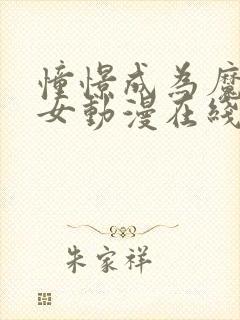 憧憬成为魔
女動漫在綫
朱家祥